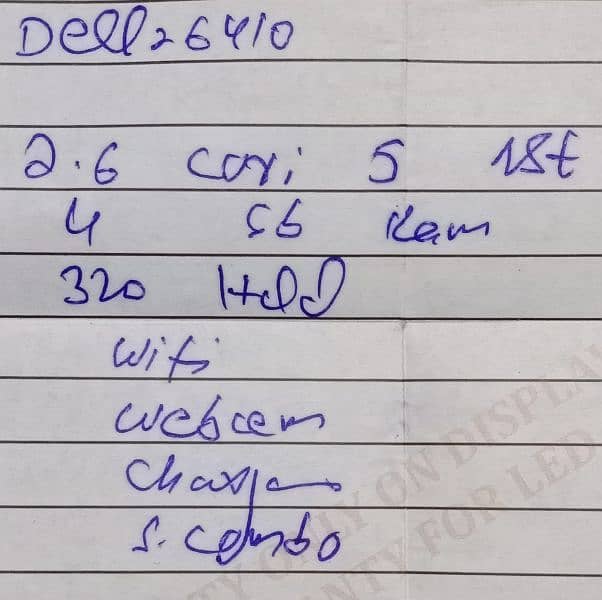 Dell 26410
2.6 Cori 5 1st
4 GB Ram
320 Hdd
Wifi
Webcam
Charjer
S. Combo
TY ONLY ON DISPLAY
ANTY FOR LED